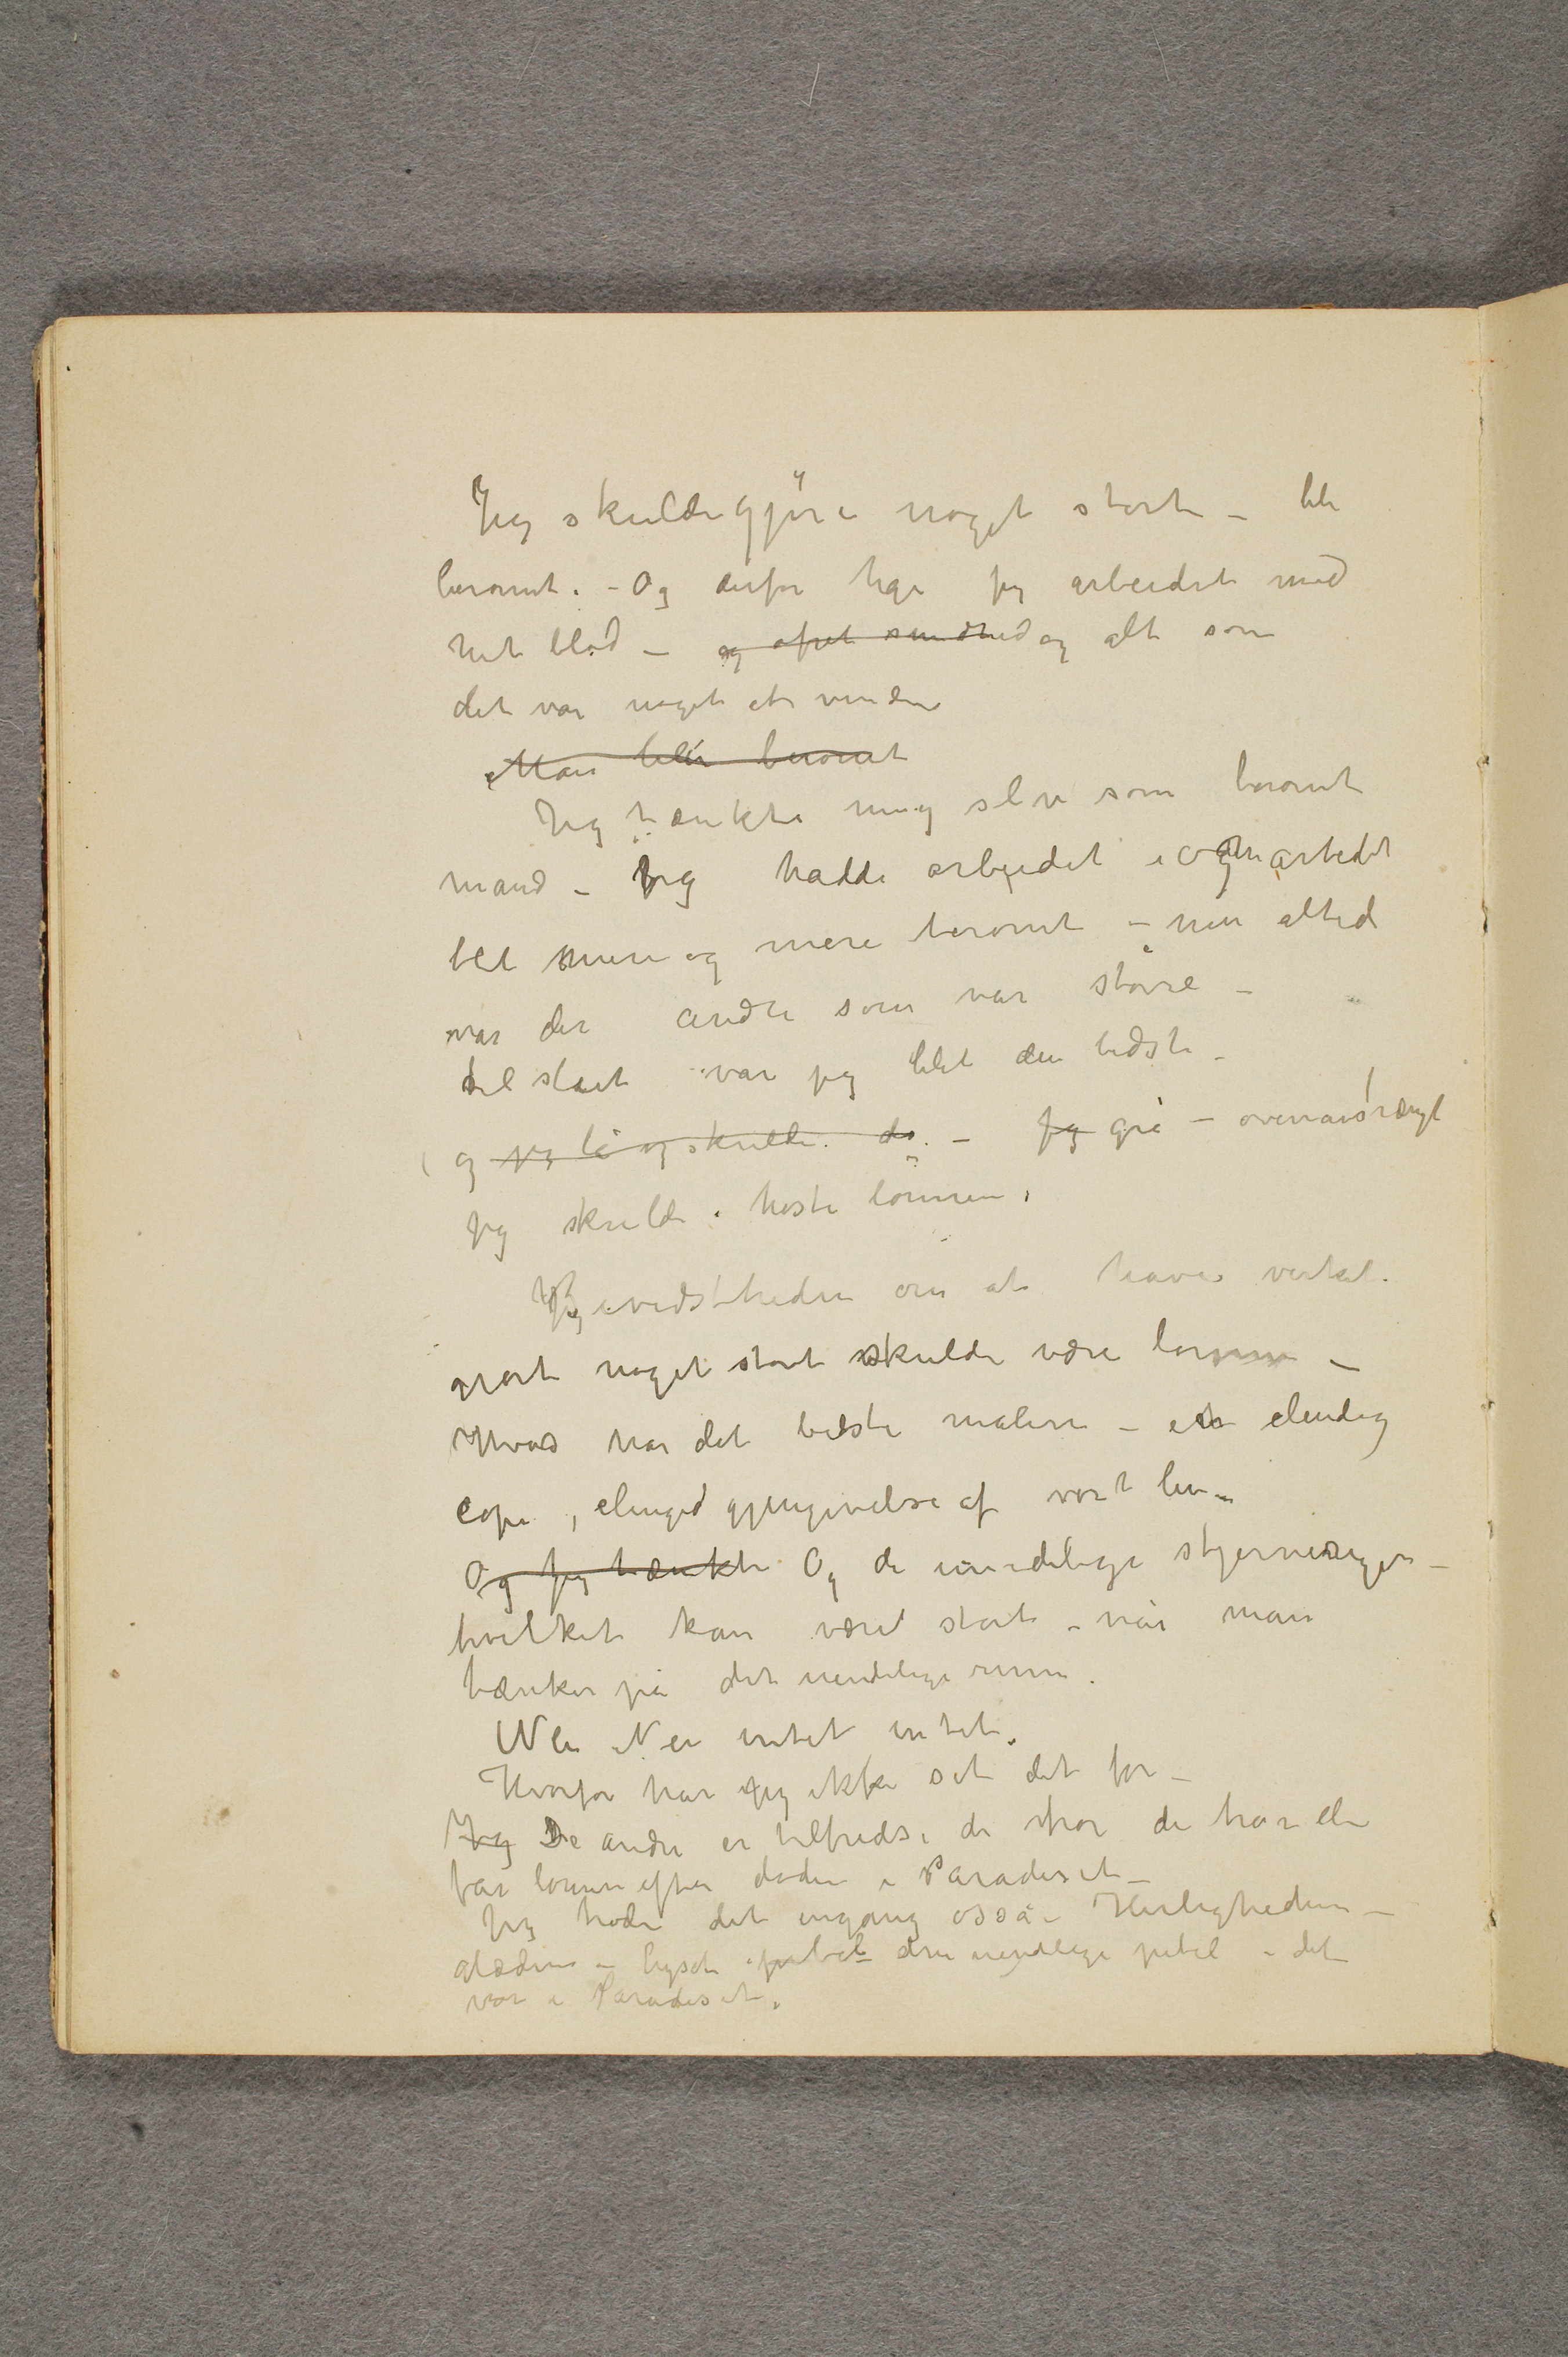 Jeg skulde gjöre noget stort – bli
beromt. – Og derfor har jeg arbeidet med
het blod – og ofret sundhed og alt som
det var noget at vinde
Man blir beromt
Jeg tænkte mig selv som beromt
mand – Jeg hadde arbeidet og arbedet
blit mere og mere beromt – men altid
var der andre som var större –
til slut var jeg blit den bedste –
og jeg lå og skulde dø. – Jeg grå –
jeg skulde höste lönnen.
Bevidstheden om at have virkel.
gjort noget stort skulde være lønnen –
Hvad har det bedste maleri – en elendig
copi, elengid gjengivelse af vort liv –
Og jeg tænkte Og de uendelige stjerneriger –
hvilket kan være stort – når man
tænker på det uendelige rum.
Nei Nei intet intet.
Hvorfor har jeg ikke set det før –
Jeg De andre er tilfreds, de tror de har el
får lønnen efter døden i Paradiset –
Jeg trode det engang osså – Herligheden –
glæden – lyset jubel den uendelige jubel – det
var i Paradiset.